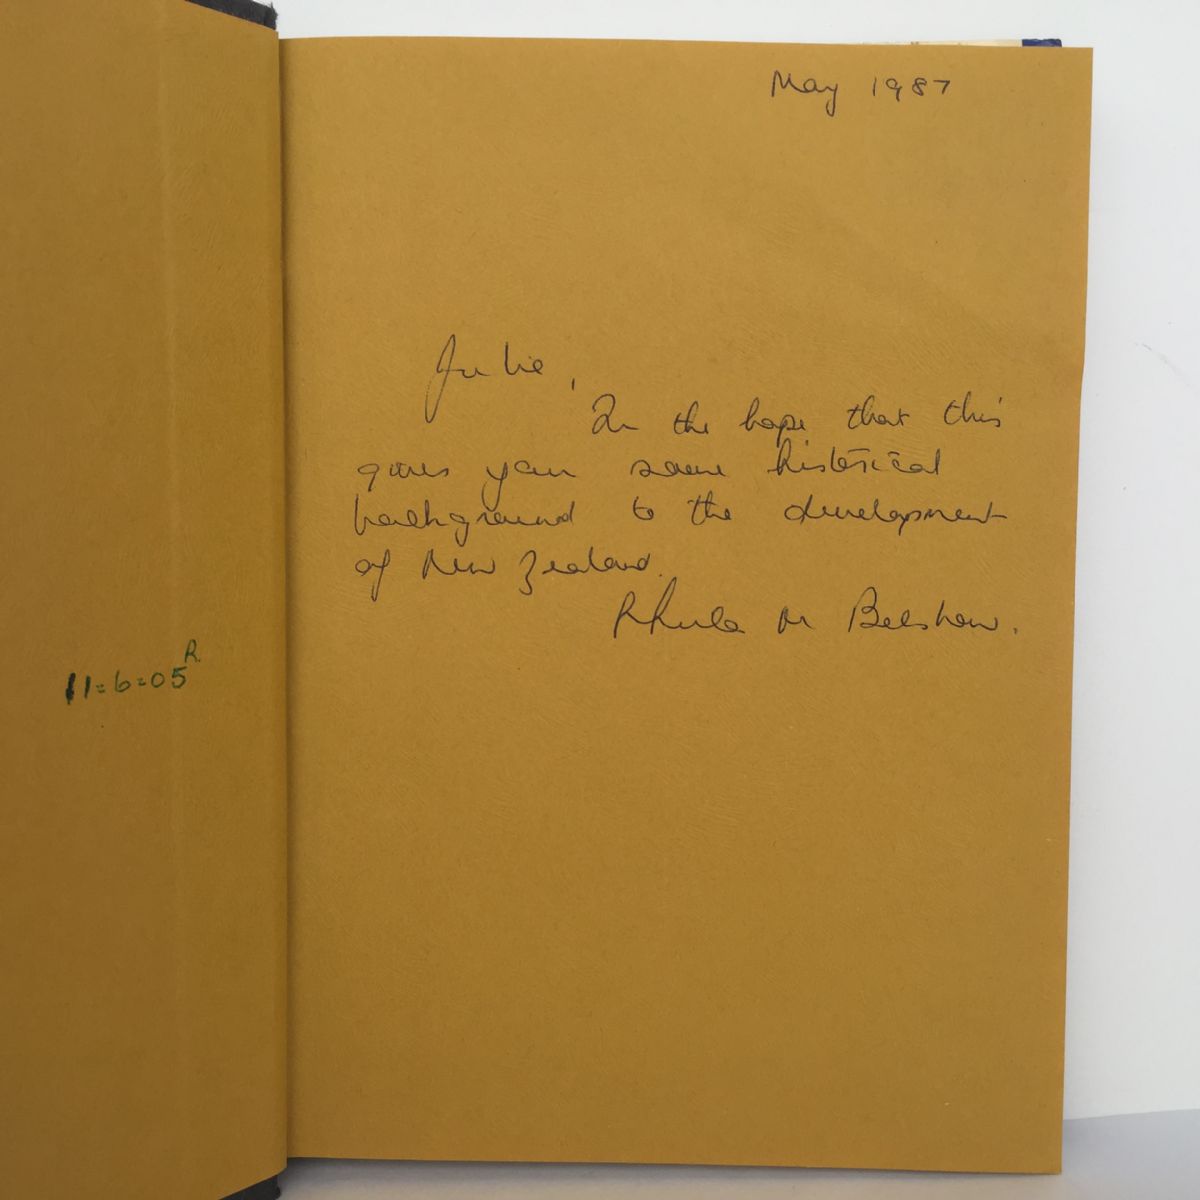 11=6=05 R
May 1987
Julie,
In the hope that this
gives you some historical
background to the development
of New Zealand.
M Belshaw.